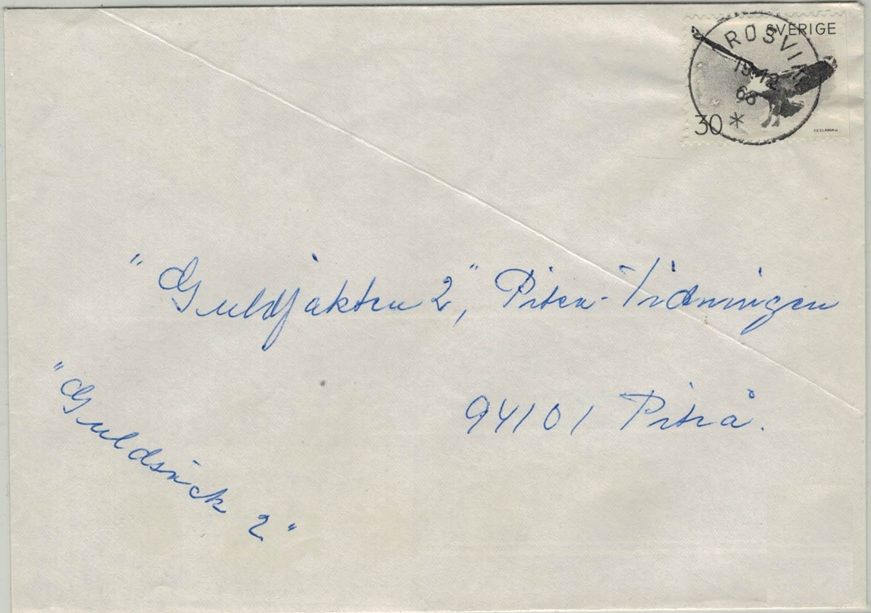 SVERIGE
ROSVIK
19.12
68
30
"Guldjakten 2", Piteå-Tidningen
94101 Piteå.
"Guldsäck 2"